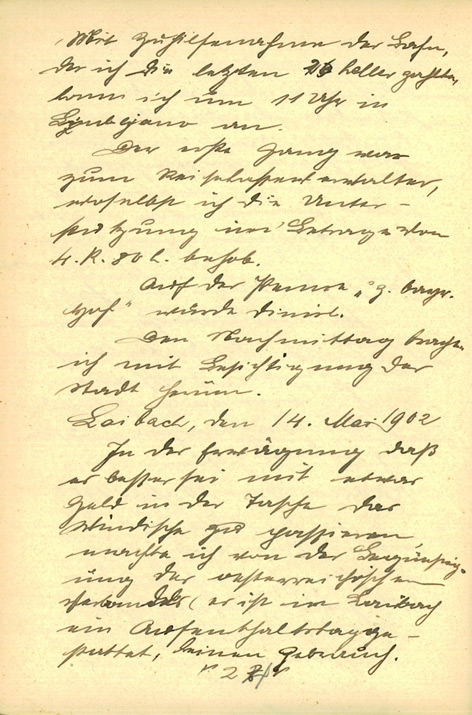 Mit Zuhilfenahme der Bahn,
der ich die letzten 26 Heller zahlte,
kam ich um 11 Uhr in
Ljubljano an.
Der erste Gang war
zum Reisekassenverwalter,
woselbst ich die Unter-
stützung im Betrage von
4. K. 80 h. behob.
Auf der Penne „z. bayr.
Hof" wurde diniert.
Den Nachmittag brachte
ich mit Besichtigung der
Stadt herum.
Laibach, den 14. Mai 1902
In der Erwägung daß
es besser sei mit etwas
Geld in der Tasche das
Windische zu passieren,
machte ich von der Begünstig-
ung des oesterreichischen
Verbandes (es ist in Laibach
ein Aufenthaltstag ge-
stattet, keinen Gebrauch.